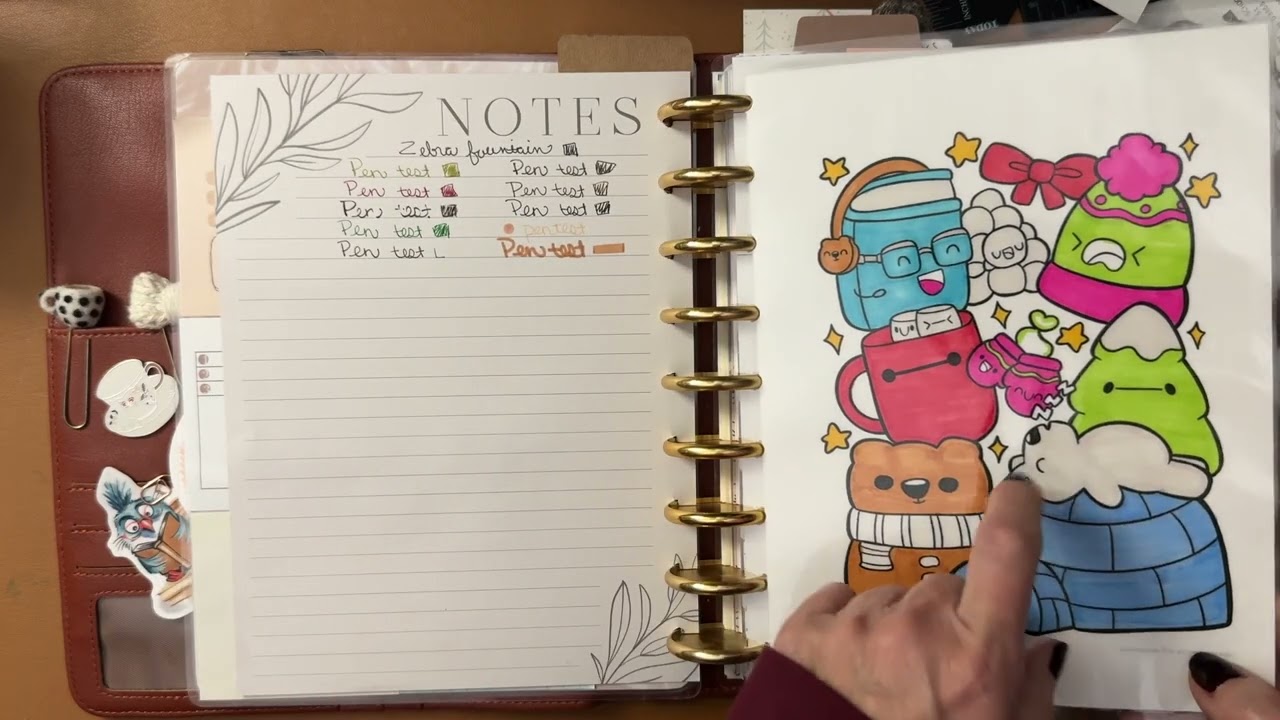 NOTES
Zebra fountain
Pen test Pen test
Pen test Pen test
Pen test Pen test
Pen test pen test
Pen test Pen test
TODAY